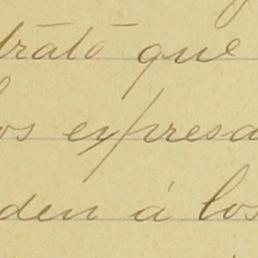 trató que
os expresa
den á los